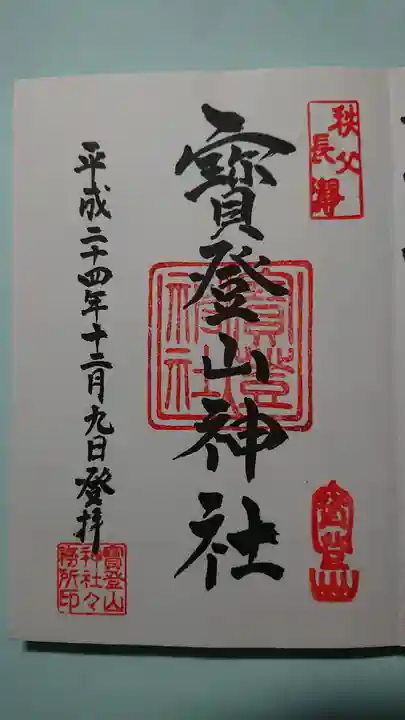 秩父
長瀞
寳登山神社
寳登
神社
寳登山
平成二十四年十二月九日登拝
寳登山
神社々
務所印